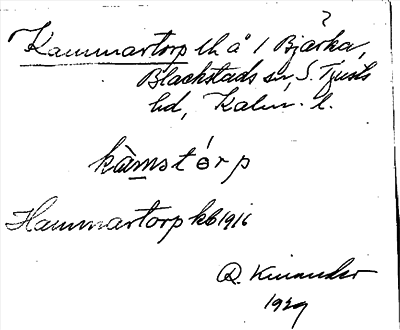 ?
Kammartorp lh å 1 Bjärka,
Blackstads sn, S. Tjusts
hd, Kalm. l.
kàmstórp
Hammartorp kb 1916
R. Kinander
1929